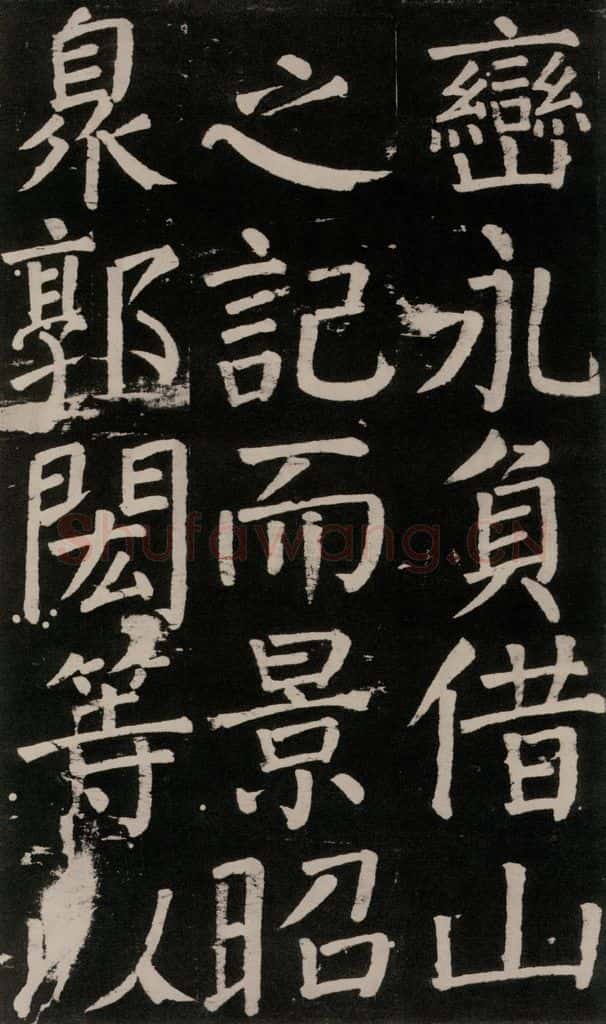 巒永負借山
之記而景昭
臮郭閎等以
Shufawang.CN